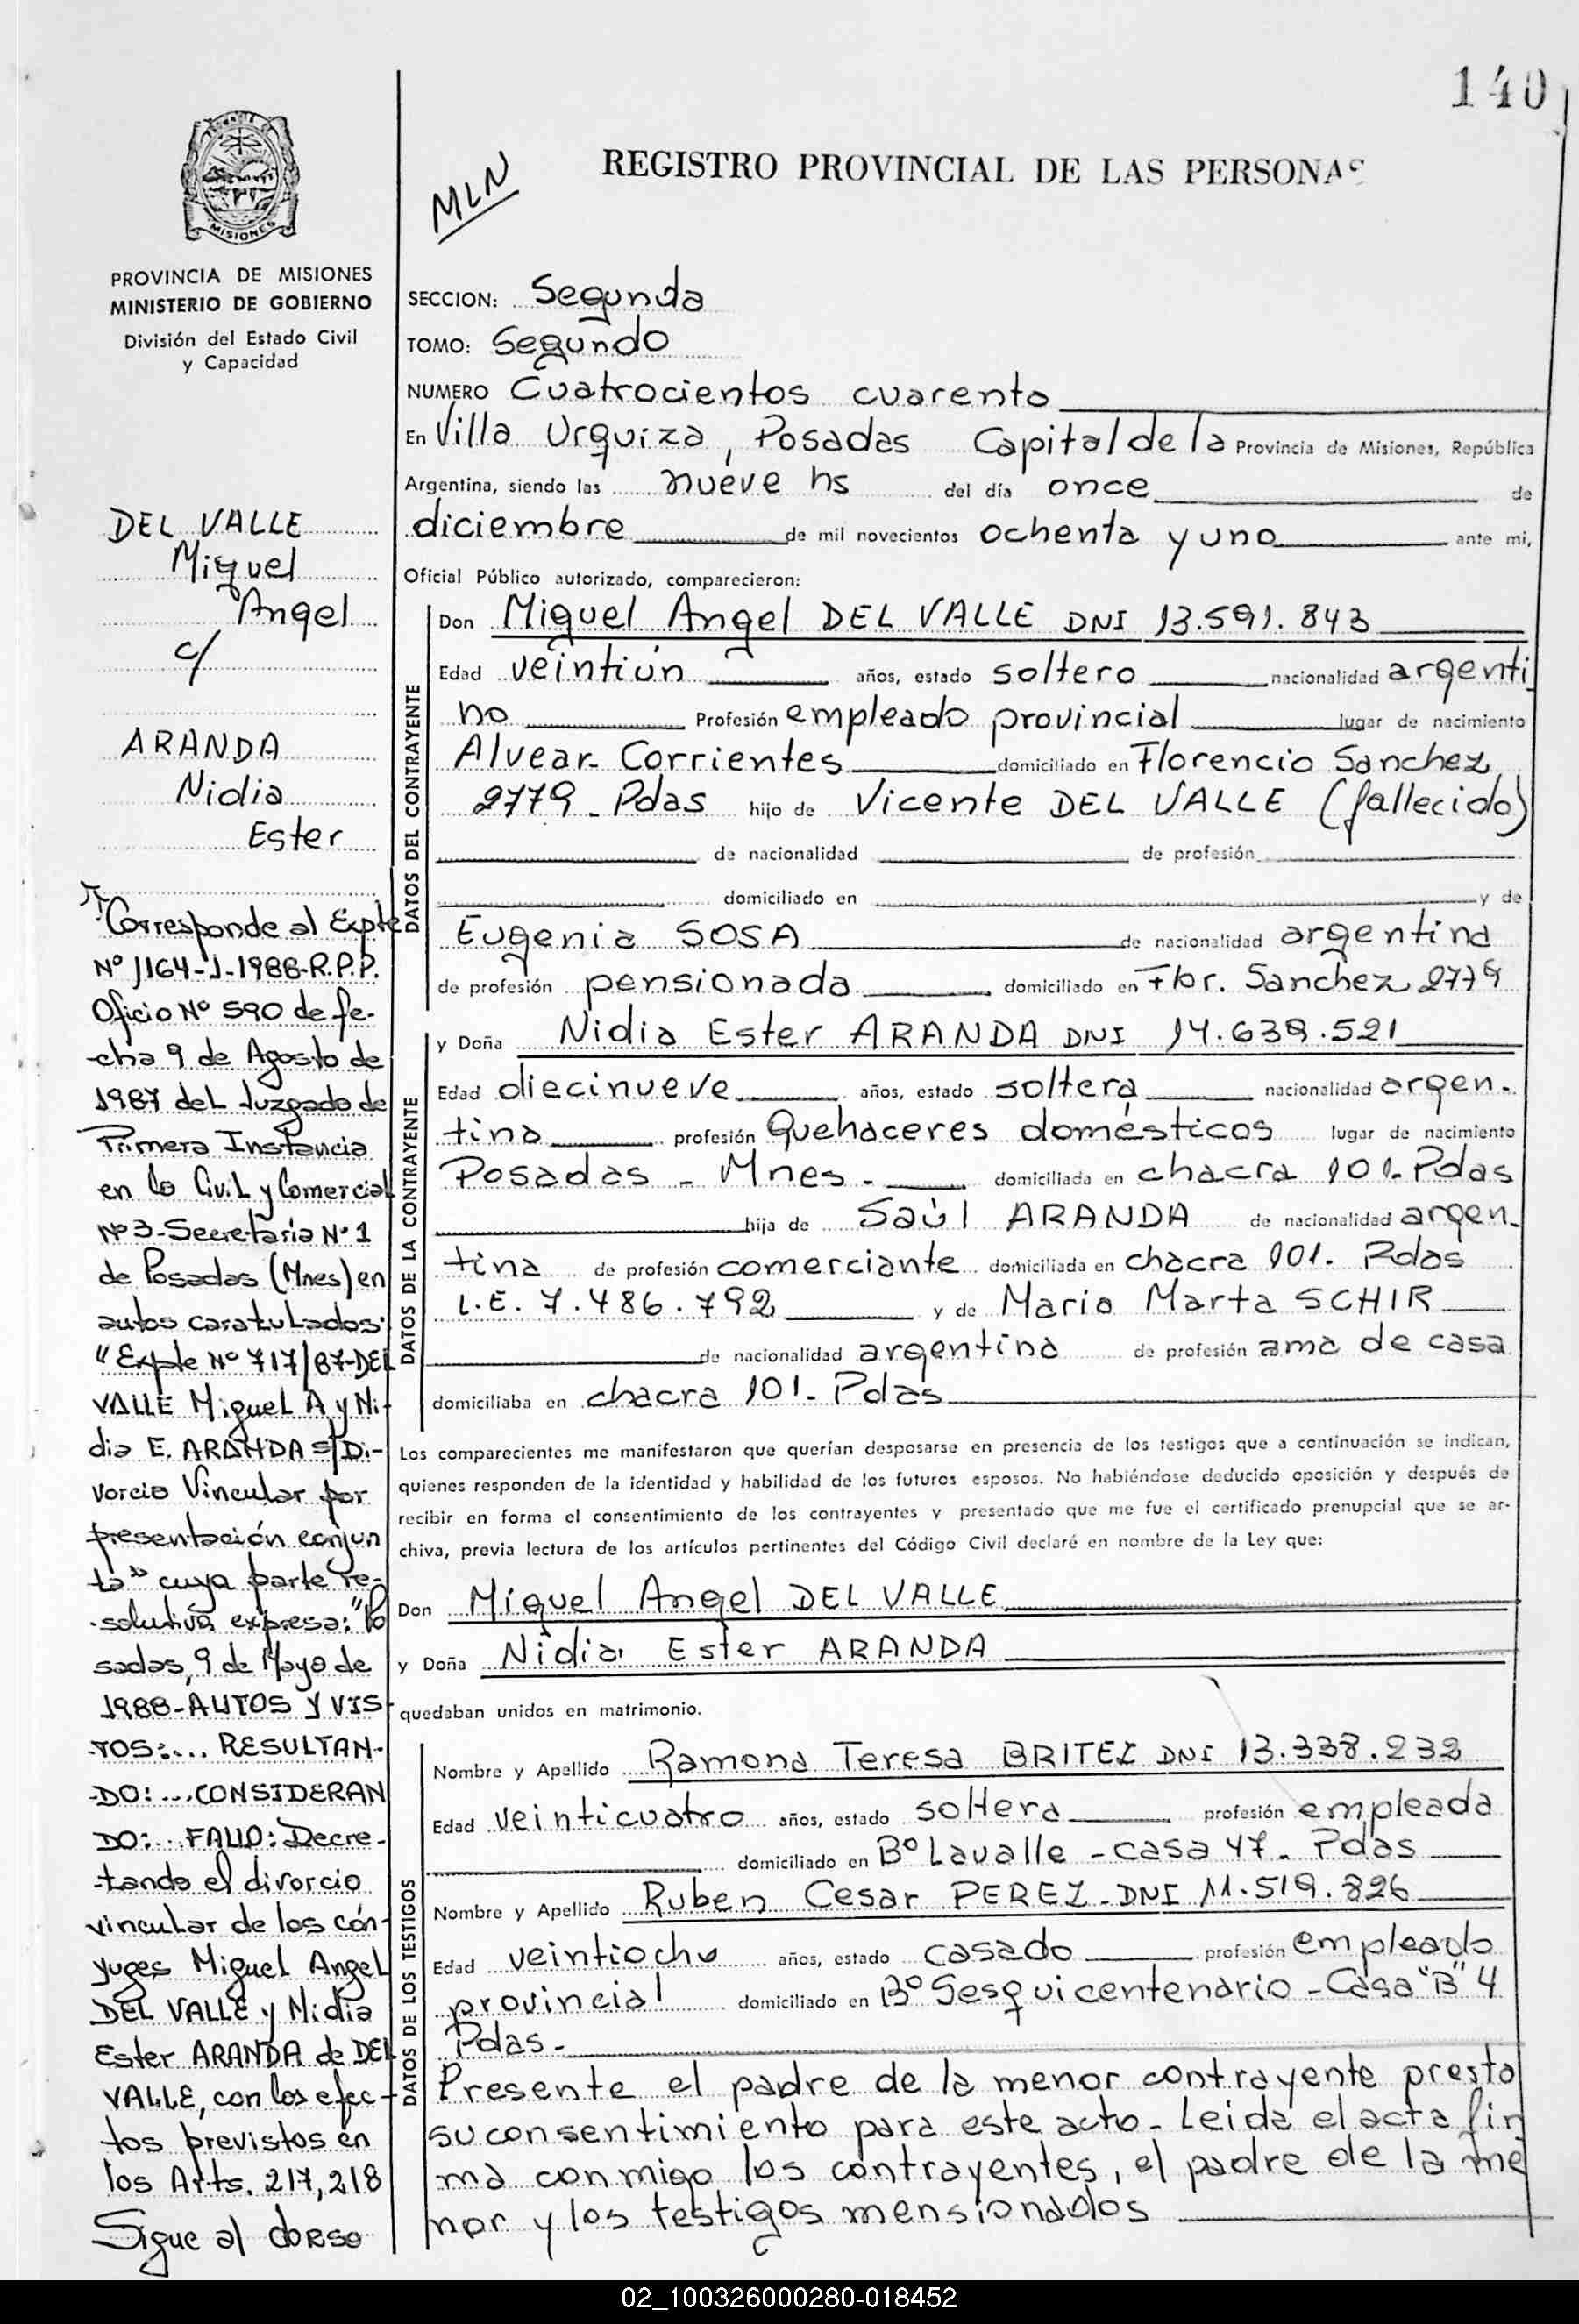 140
REGISTRO PROVINCIAL DE LAS PERSONAS
MLN
MISIONES
PROVINCIA DE MISIONES
MINISTERIO DE GOBIERNO
División del Estado Civil
y Capacidad
DEL VALLE
Miguel
Angel
c/
ARANDA
Nidia
Ester
Corresponde al Expte
Nº 1164-J-1988-R.P.P.
Oficio Nº 590 de fe-
cha 9 de Agosto de
1987 del Juzgado de
Primera Instancia
en lo Civil y Comercial
Nº 3-Secretaría Nº 1
de Posadas (Mnes) en
autos caratulados:
"Expte Nº 717/87-DEL
VALLE Miguel A y Ni-
dia E. ARANDA s/Di-
vorcio Vincular por
presentación conjun
ta" cuya parte re-
solutiva expresa: "Po
sadas, 9 de Mayo de
1988-AUTOS Y VIS
TOS:... RESULTAN-
DO:...CONSIDERAN
DO:...FALLO: Decre-
tando el divorcio
vincular de los cón-
yuges Miguel Angel
DEL VALLE y Nidia
Ester ARANDA de DEL
VALLE, con los efec-
tos previstos en
los Arts. 217, 218
Sigue al dorso
SECCION: Segunda
TOMO: Segundo
NUMERO Cuatrocientos cuarenta
En Villa Urquiza, Posadas Capital de la Provincia de Misiones, República
Argentina, siendo las nueve hs del día once de
diciembre de mil novecientos ochenta y uno ante mi,
Oficial Público autorizado, comparecieron:
DATOS DEL CONTRAYENTE
Don Miguel Angel DEL VALLE DNI 13.591.843
Edad veintiún años, estado soltero nacionalidad argenti
no Profesión empleado provincial lugar de nacimiento
Alvear- Corrientes domiciliado en Florencio Sanchez
2779 - Pdas hijo de Vicente DEL VALLE (fallecido)
de nacionalidad de profesión
domiciliado en y de
Eugenia SOSA de nacionalidad argentina
de profesión pensionada domiciliado en Flor. Sanchez 2779
DATOS DE LA CONTRAYENTE
y Doña Nidia Ester ARANDA DNI 14.639.521
Edad diecinueve años, estado soltera nacionalidad argen-
tina profesión Quehaceres domésticos lugar de nacimiento
Posadas - Mnes - domiciliada en chacra 101- Pdas
hija de Saúl ARANDA de nacionalidad argen-
tina de profesión comerciante domiciliada en chacra 101- Pdas
L.E. 7.486.792 y de Maria Marta SCHIR
de nacionalidad argentina de profesión ama de casa
domiciliaba en chacra 101- Pdas
Los comparecientes me manifestaron que querían desposarse en presencia de los testigos que a continuación se indican,
quienes responden de la identidad y habilidad de los futuros esposos. No habiéndose deducido oposición y después de
recibir en forma el consentimiento de los contrayentes y presentado que me fue el certificado prenupcial que se ar-
chiva, previa lectura de los artículos pertinentes del Código Civil declaré en nombre de la Ley que:
Don Miguel Angel DEL VALLE
y Doña Nidia Ester ARANDA
quedaban unidos en matrimonio.
DATOS DE LOS TESTIGOS
Nombre y Apellido Ramona Teresa BRITEZ DNI 13.338.232
Edad veinticuatro años, estado soltera profesión empleada
domiciliado en Bº Lavalle - casa 47- Pdas
Nombre y Apellido Ruben Cesar PEREZ - DNI 11.519.826
Edad veintiocho años, estado casado profesión empleado
provincial domiciliado en Bº Sesquicentenario - Casa "B" 4
Pdas-
Presente el padre de la menor contrayente presta
su consentimiento para este acto- Leida el acta fir
ma conmigo los contrayentes, el padre de la me
nor y los testigos mensionados
02_100326000280-018452